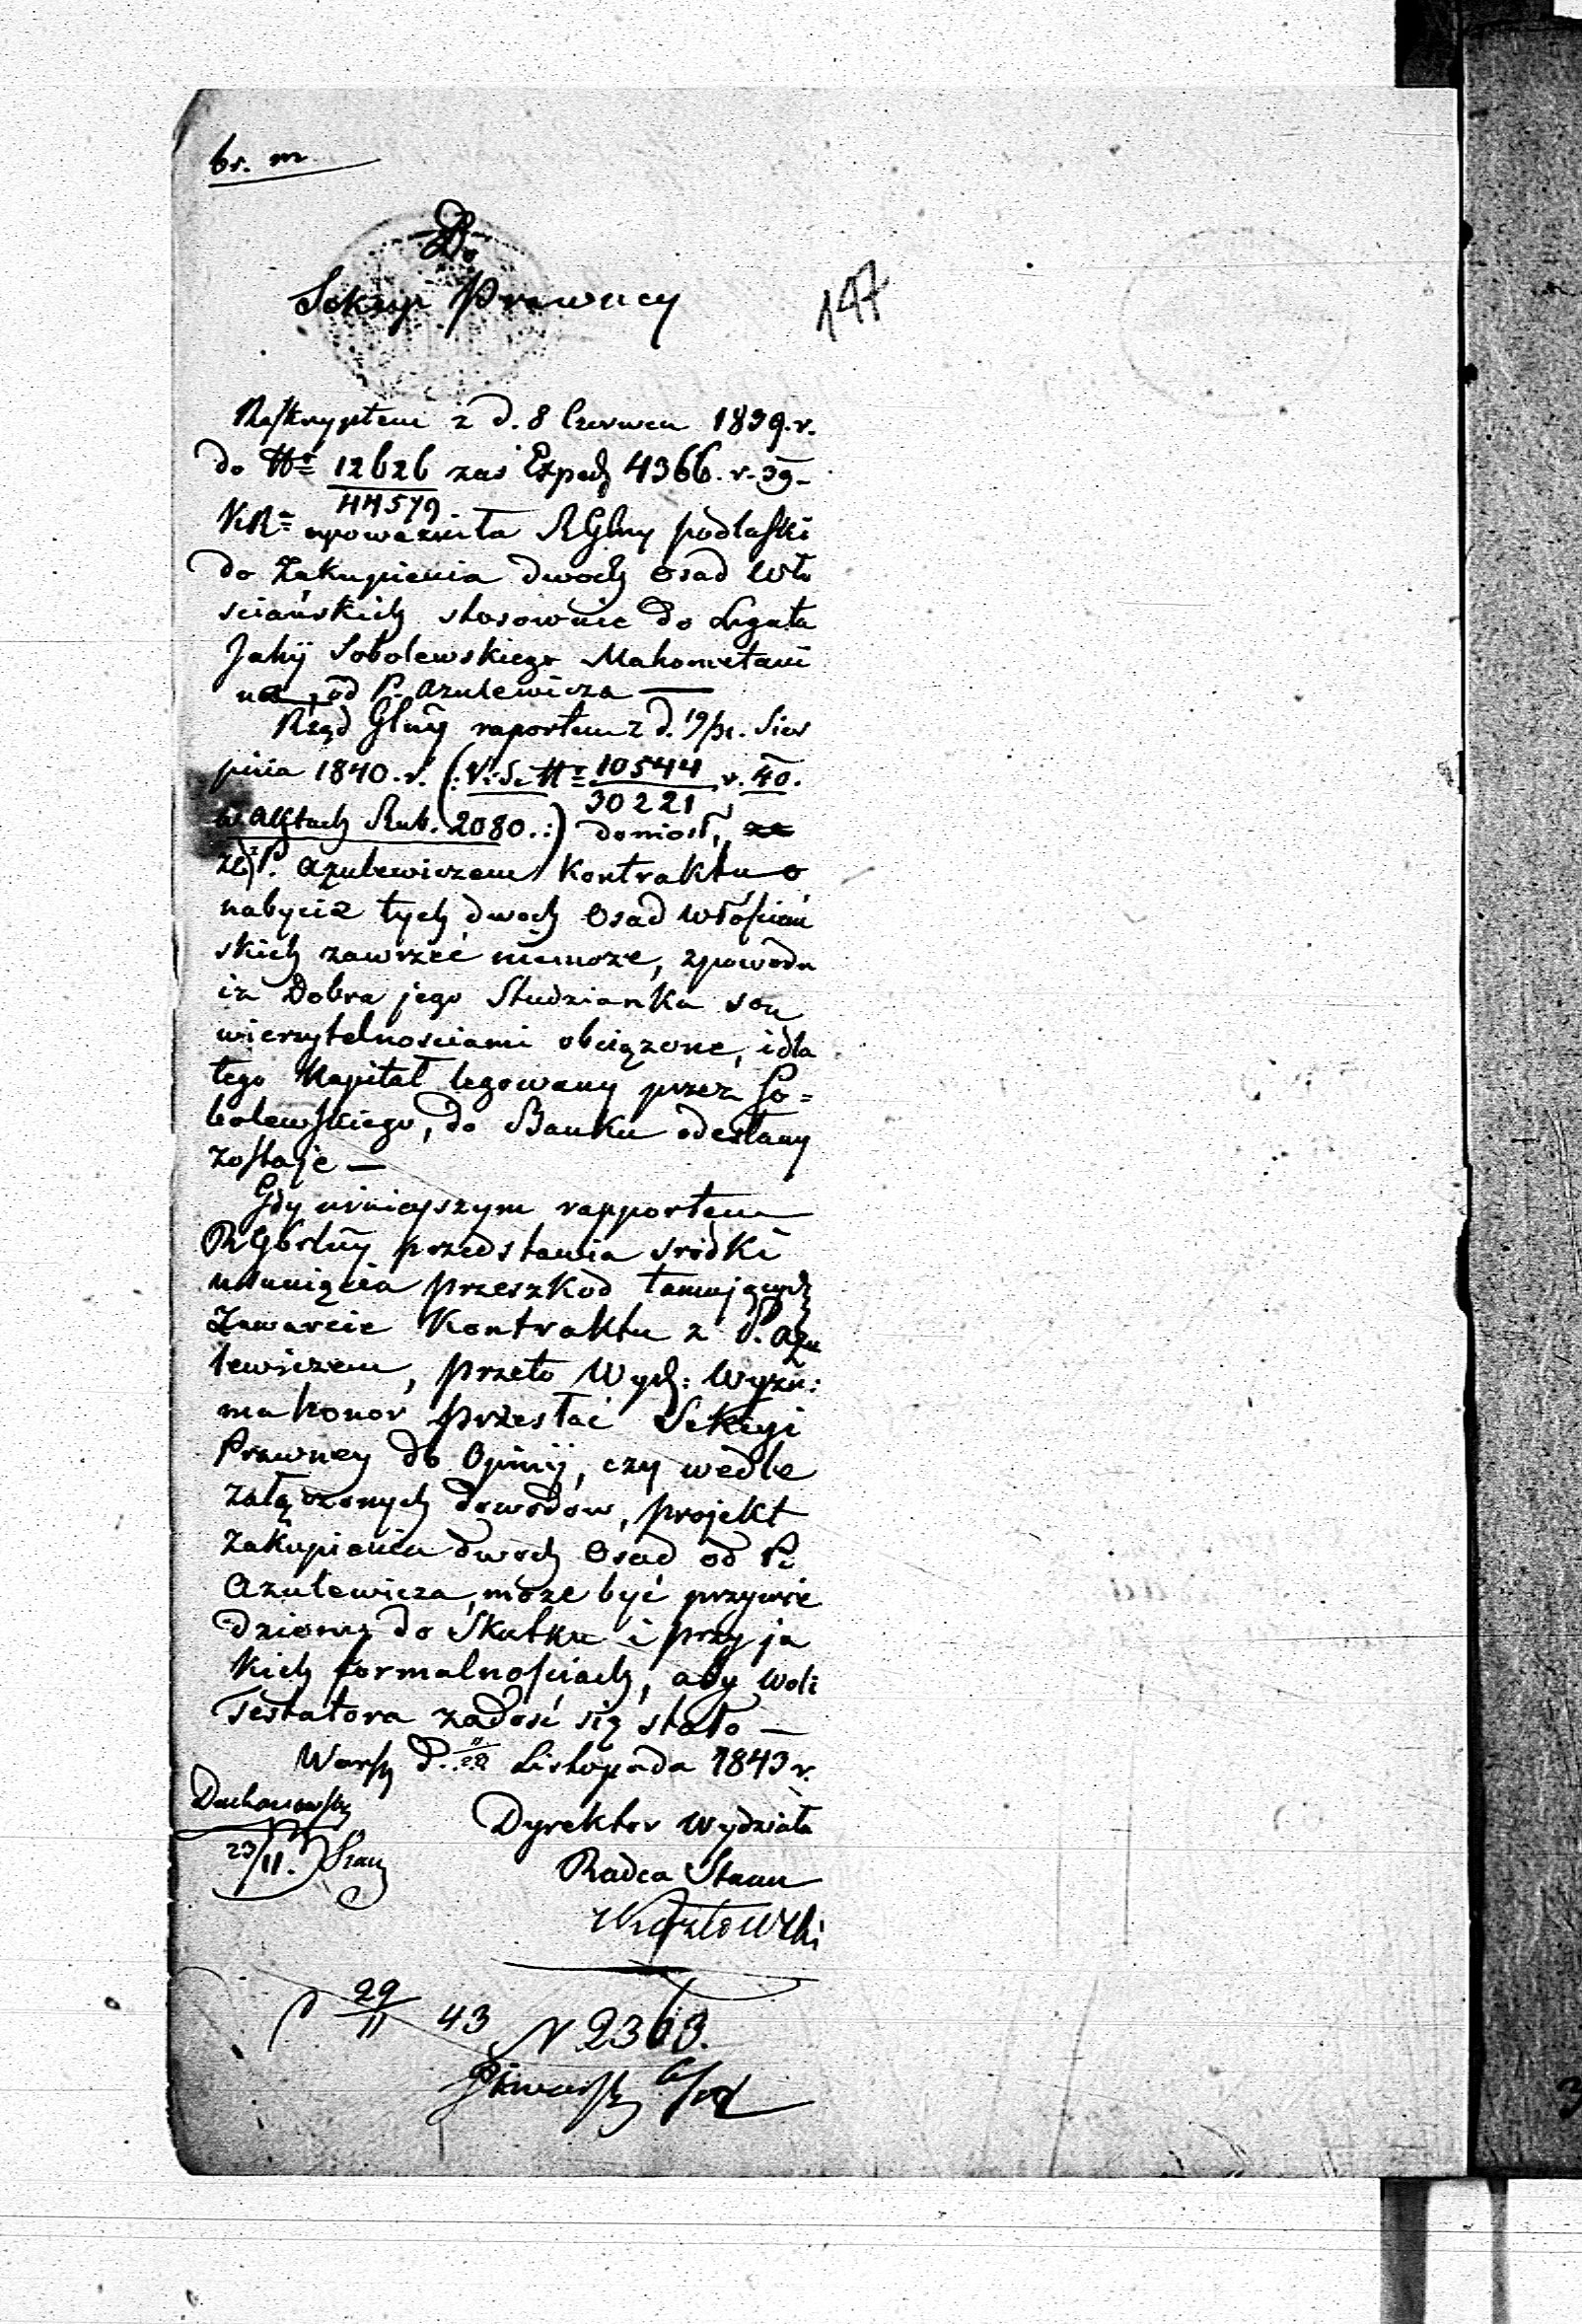 br. m
Do
Sekcyi Prawney
147
Reskryptem z d. 8 Czerwca 1839. r.
do Nr 12626 zaś Exped 4366. r. 39-
44579
KR upoważniła RGlny podlaski
do Zakupienia dwoch Osad Wło
sciańskich stosownie do Legatu
Jahij Sobolewskiego Mahometani
na, od P. Azulewicza —
Rząd Glny raportem z d. 19/31. Sier
pnia 1840. r. (: V. S. Nr 10544 r. 40.
30221
w Aktach Rub. 2080. :) doniosł,
że z P. Azulewiczem Kontraktu o
nabycie tych dwoch Osad Włościań
skich zawrzeć niemoże, zpowodu
iż Dobra jego Studzianka są
wierzytelnosciami obciążone, i dla
tego Kapitał legowany przez So=
bolewskiego, do Banku odesłany
zostaje —
Gdy niniejszym rapportem
RGbrlny przedstawia srodki
usunięcia przeszkod tamujących
Zawarcie Kontraktu z P. Azu
lewiczem, przeto Wydz: Wyzń:
ma honor przesłać Sekcyi
Prawney do Opinij, czy wedle
załączonych dowodow, projekt
Zakupienia dwoch Osad od P.
Azulewicza, może być przywie
dziony do Skutku i przy ja
kich formalnościach, aby woli
Testatora zadosć się stało —
Warsz D. Listopada 1843 r.
Dyrektor Wydziału
23/11.
Radca Stanu
d 29/11 43 N 2363.